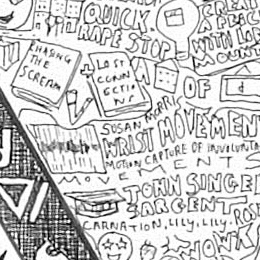 QUICK,
RAPE STOP
GREAT
SPACE
WITH
MOUNT
CHASING
THE
SCREAM
LOST
CONN
ECTIO
NS
OF
SUSAN MORRIS
WRIST MOVEMENT
MOTION CAPTURE OF INVOLUNTA
MOVEMENTS
JOHN SINGER
SARGENT
CARNATION, LILY, LILY, ROSE